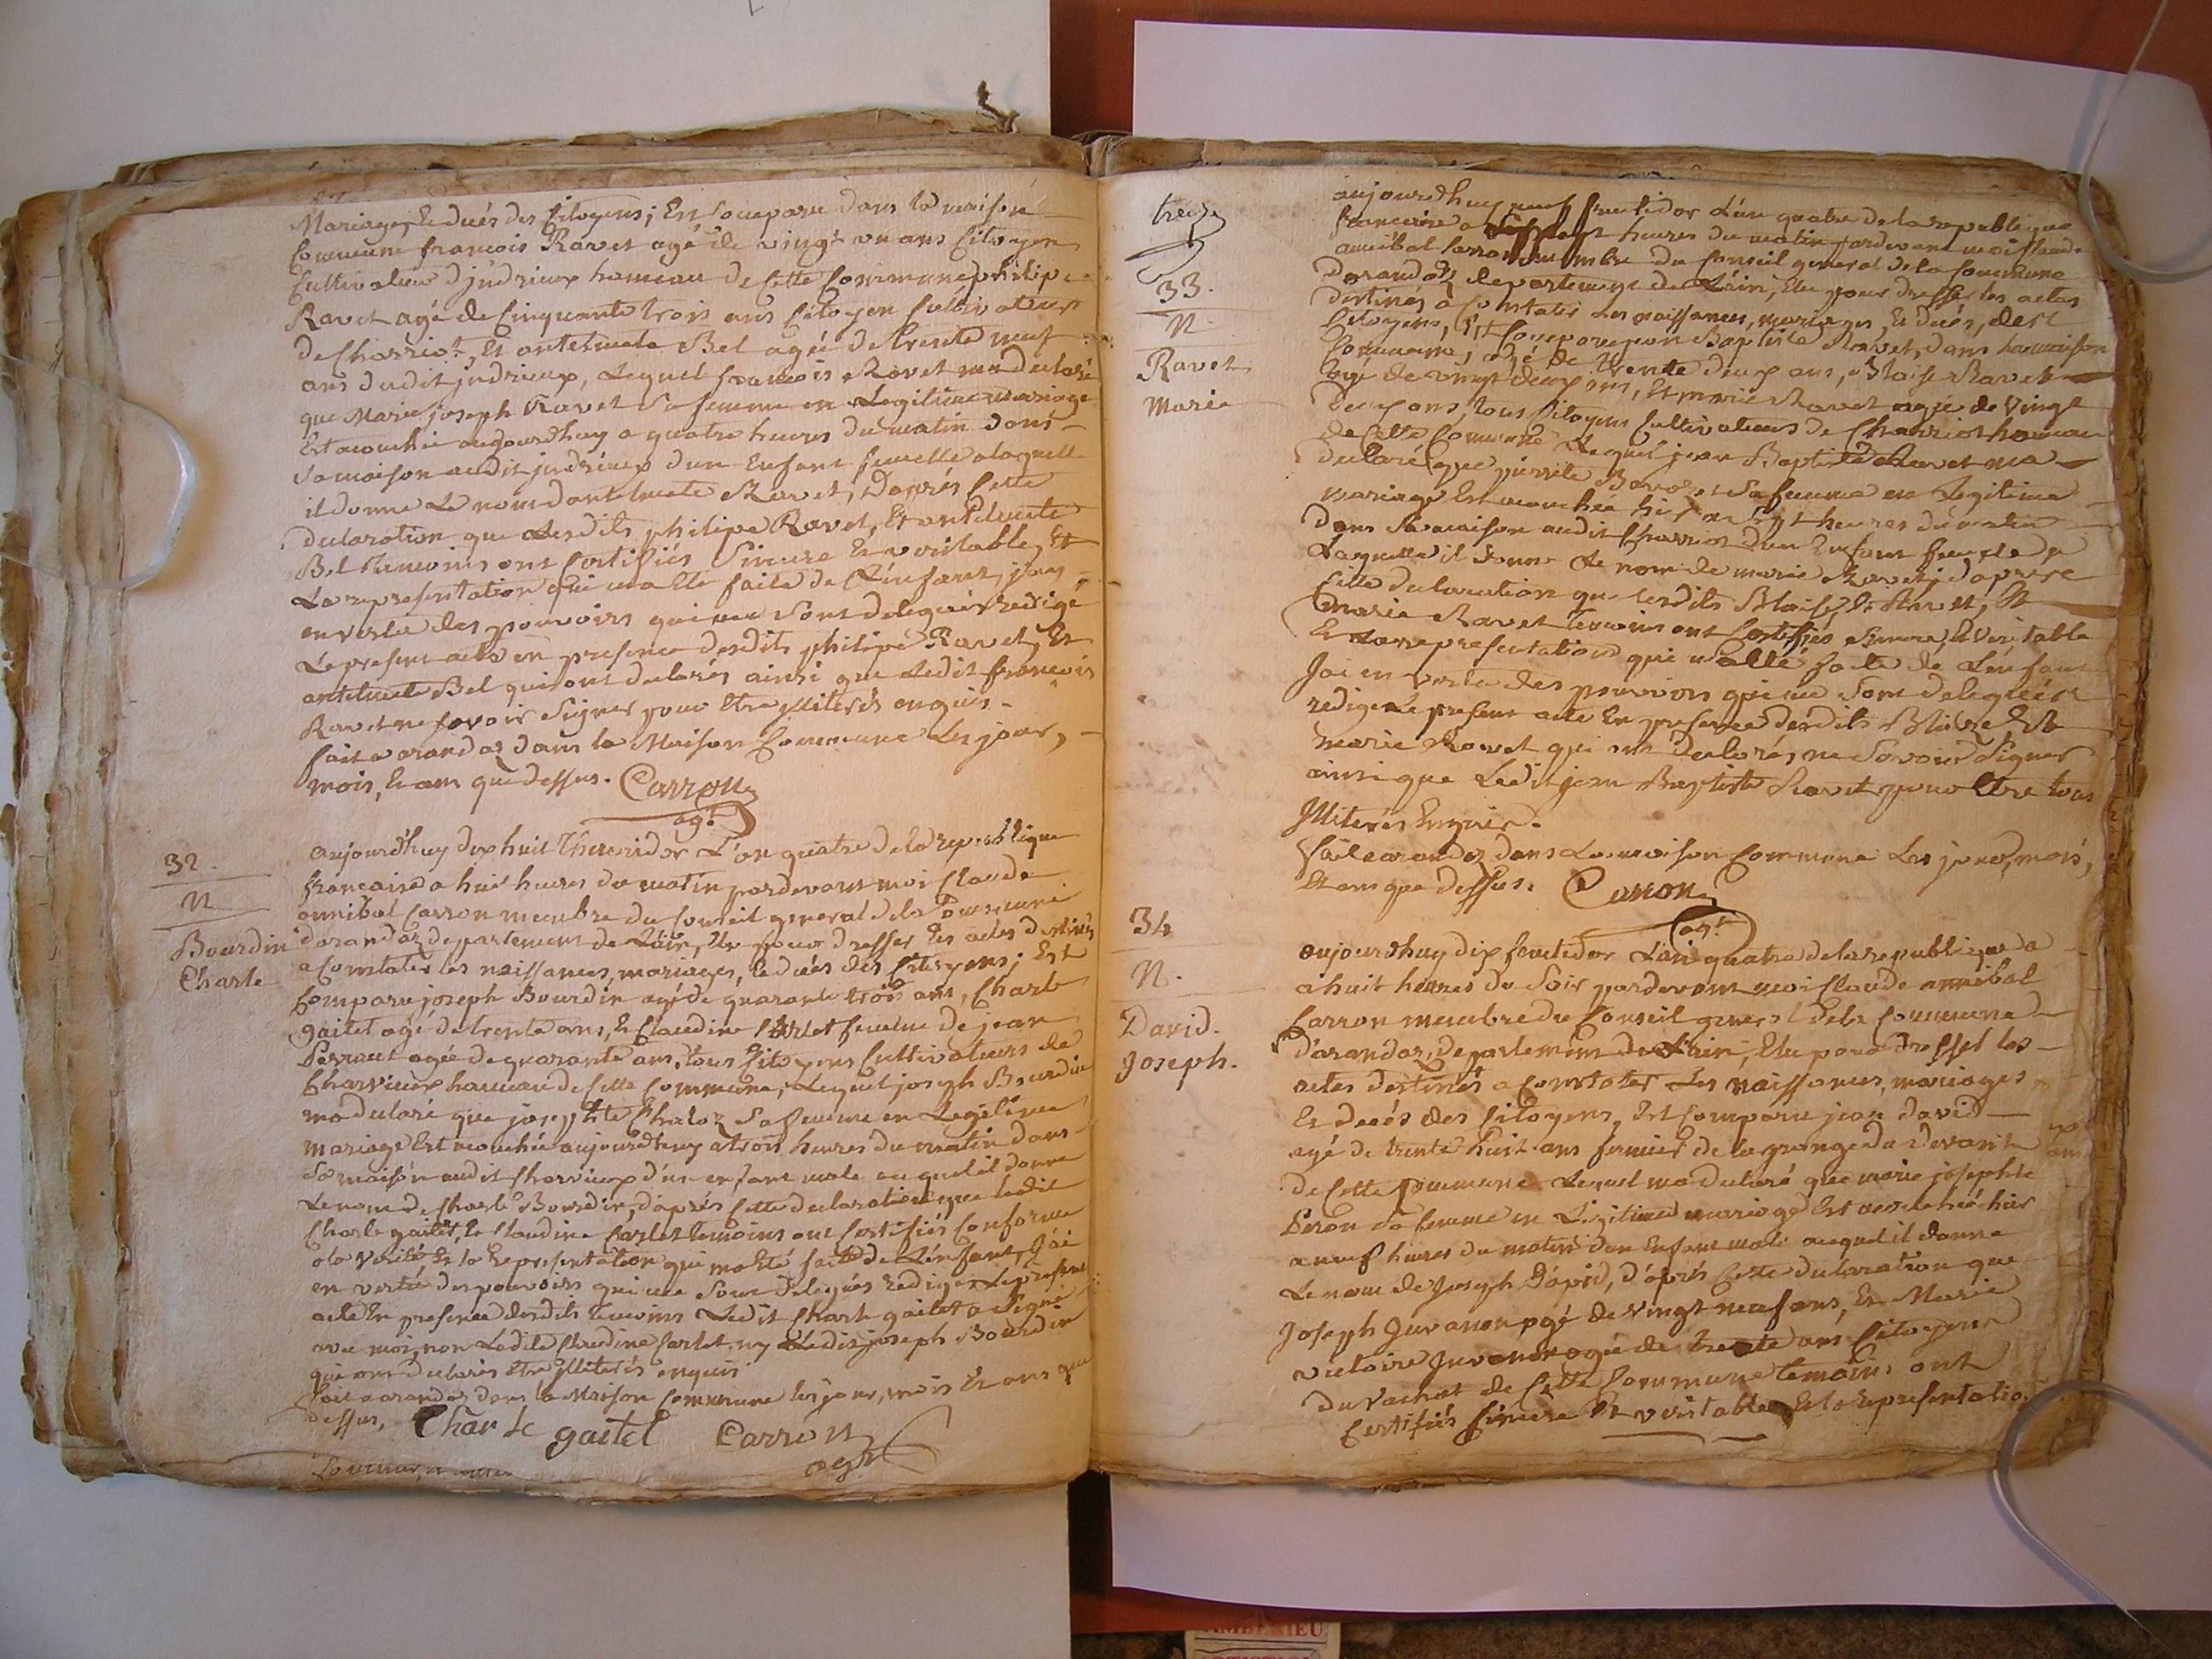 Mariages, & decés des Citoyens; Est comparu dans la maison
Commune francois Ravet agé de vingt un ans Citoyen
Cultivateur d'judrieux hameau de Cette Commune, philipe
Ravet agé de Cinquante trois ans Citoyen Cultivateur
de Charriot, Et antelmete Bel agée de trente neuf
ans dudit judrieux, Lequel francois Ravet ma declaré
que Marie joseph Ravet Sa femme en Legitime mariage
Est acouchée aujourdhuy a quatre heures du matin dans
Sa maison audit judrieux dun Enfant femelle alaquelle
il donne Le nom dantelmete Ravet, Daprés Cette
declaration que Lesdits philipe Ravet, Et antelmete
Bel temoins ont Certifiés Sincere Et veritable, Et
La representation qui ma été faite de L'enfant, jay
en vertu des pouvoirs qui me Sont delegués redigé
Le present acte en presence desdits philipe Ravet, Et
antelmete Bel qui ont declarés ainsi que Ledit francois
Ravet ne Savoir Signer pour Etre illiterés enquis.
fait a arandaz dans la Maison Commune Les jour,
mois, Et am que dessus. Carron
agt
32.
N
Bourdin
Charle
aujourdhuy dix huit thermidor L'an quatre de la republique
francaise a huit heures du matin pardevant moi Claude
annibal Carron membre du Conseil general de la Commune
darandaz departement de L'ain, Elu pour dresser les actes destinés
a Constater les naissances, mariages, & decés des Citoyens; Est
Comparu joseph Bourdin agé de quarante trois ans, Charle
gaitet agé de trente ans, & Claudine Carlet femme de jean
Perraut agée de quarante ans, tous Citoyens Cultivateurs de
Charvieux hameau de Cette Commune, Lequel joseph Bourdin
ma declaré que josephte Chaloz Sa femme en Legitime
mariage Est acouchée aujourdhuy a trois heures du matin dans
Sa maison audit Charvieux d'un enfant male auquel il donne
Le nom de Charle Bourdin, d'aprés Cette declaration que ledit
Charle gaitet, & Claudine Carlet temoins ont Certifiés Conforme
a la verité, & la Representation qui ma été faite de L'enfant, J'ai
en vertu des pouvoirs qui me Sont delegués Rediger Le present
acte En presence desdits temoins Ledit Charle gaitet a Signé
avec moi, non Ladite Claudine Carlet, ny Ledit joseph Bourdin
qui ont declarés Etre illiterés enquis
fait a arandaz dans la Maison Commune les jour, mois Et ans que
dessus. Charle gaitet Carron
agt
treize
33.
N.
Ravet
Marie
aujourdhuy neuf fructidor L'an quatre de la republique
francaise a heures du matin pardevant moi Claude
annibal Carron membre du Conseil general de la Commune
Darandaz departement de L'ain, Elu pour dresser les actes
destinés a Constater les naissances, mariages, & decés, des
Citoyens, Est Comparu jean Baptiste Ravet, dans la maison
Commune, agé de trente deux ans, Blaise Ravet
agé de vingt deux ans, Et marie Ravet agée de vingt
deux ans, tous Citoyens Cultivateurs de Charriot hameau
de Cette Commune Lequel jean Baptiste Ravet ma
declaré que pierrete Sa femme en Legitime
mariage Est acouchée hier a Sept heures du matin
dans Sa maison audit Charriot d'un Enfant femele a
Laquelle il donne Le nom de marie Ravet, daprés
Cette declaration que lesdits Blaise Ravet, Et
Marie Ravet temoins ont Certifiés Sincere, & Veritable
Et La representation qui ma été faite de L'enfant
Jai en vertu des pouvoirs qui me Sont delegués
rediger Le present acte En presence desdits Blaise Et
Marie Ravet qui ont declarés, ne Savoir Signer
ainsi que Ledit jean Baptiste Ravet pour Etre tous
Illiterés Enquis.
Fait a arandaz dans La maison Commune Les jour, mois,
Et am que dessus. Carron
agt
34
N.
David.
Joseph.
aujourdhuy dix fructidor L'an quatre de la republique a
a huit heures du Soir pardevant moi Claude annibal
Carron membre du Conseil general de la Commune
d'arandaz, departement de L'ain, Elu pour dresser les
actes destinés a Constater Les naissances, mariages
Et decés des Citoyens, Est Comparu jean david
agé de trente huit ans fermier de la grange du devant
de Cette Commune Lequel ma declaré que marie josephte
Peron Sa femme en Legitime mariage Est acouchée hier
a neuf heures du matin d'un Enfant male auquel il donne
Le nom de Joseph David, d'aprés Cette declaration que
Joseph Juvanon agé de vingt neuf ans, Et Marie
victoire Juvanon agée de trente ans Citoyens
du vachat de Cette Commune temoins ont
Certifiés Sincere Et veritable Et la representation